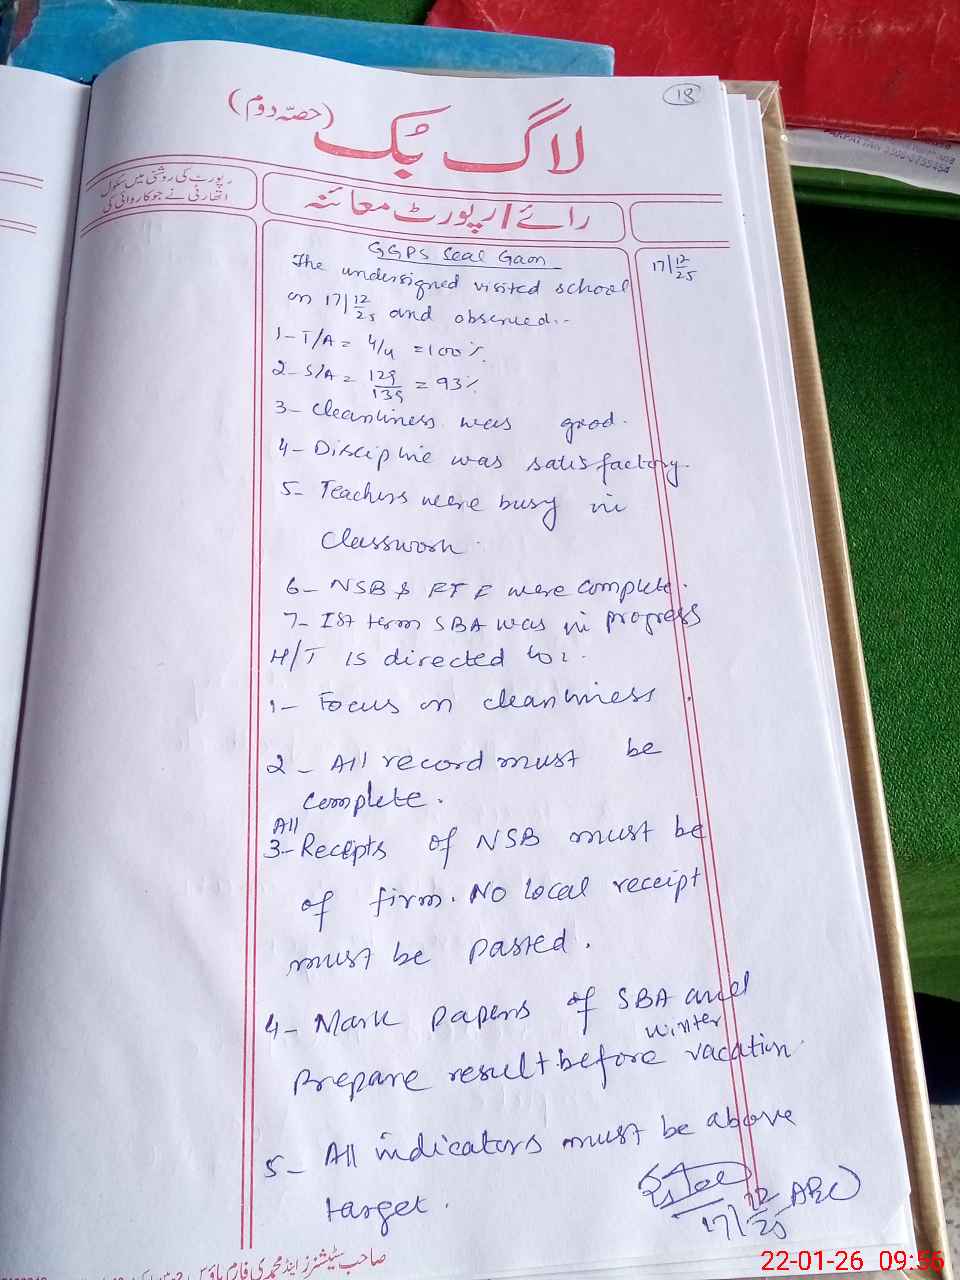 18
لاگ بُک (حصّہ دوم)
رپورٹ کی روشنی میں سکول
اتھارٹی نے جو کاروائی کی
رائے/رپورٹ معائنہ
GGPS Seal Gaon
17/12/25
The undersigned visited school
on 17/12/25 and observed:-
1- T/A = 4/4 = 100%
2- S/A = 129/139 = 93%
3- Cleanliness was good.
4- Discipline was satisfactory.
5- Teachers were busy in
classwork.
6- NSB & FTF were complete.
7- Ist term SBA was in progress
H/T is directed to:-
1- Focus on cleanliness.
2- All record must be
complete.
All
3- Recepts of NSB must be
of firm. No local receipt
must be pasted.
4- Mark papers of SBA and
winter
Prepare result before vacation.
5- All indicators must be above
target.
17/12/25
صاحب سٹیشنرز اینڈ محمدی فارم ہاؤس
22-01-26 09:56